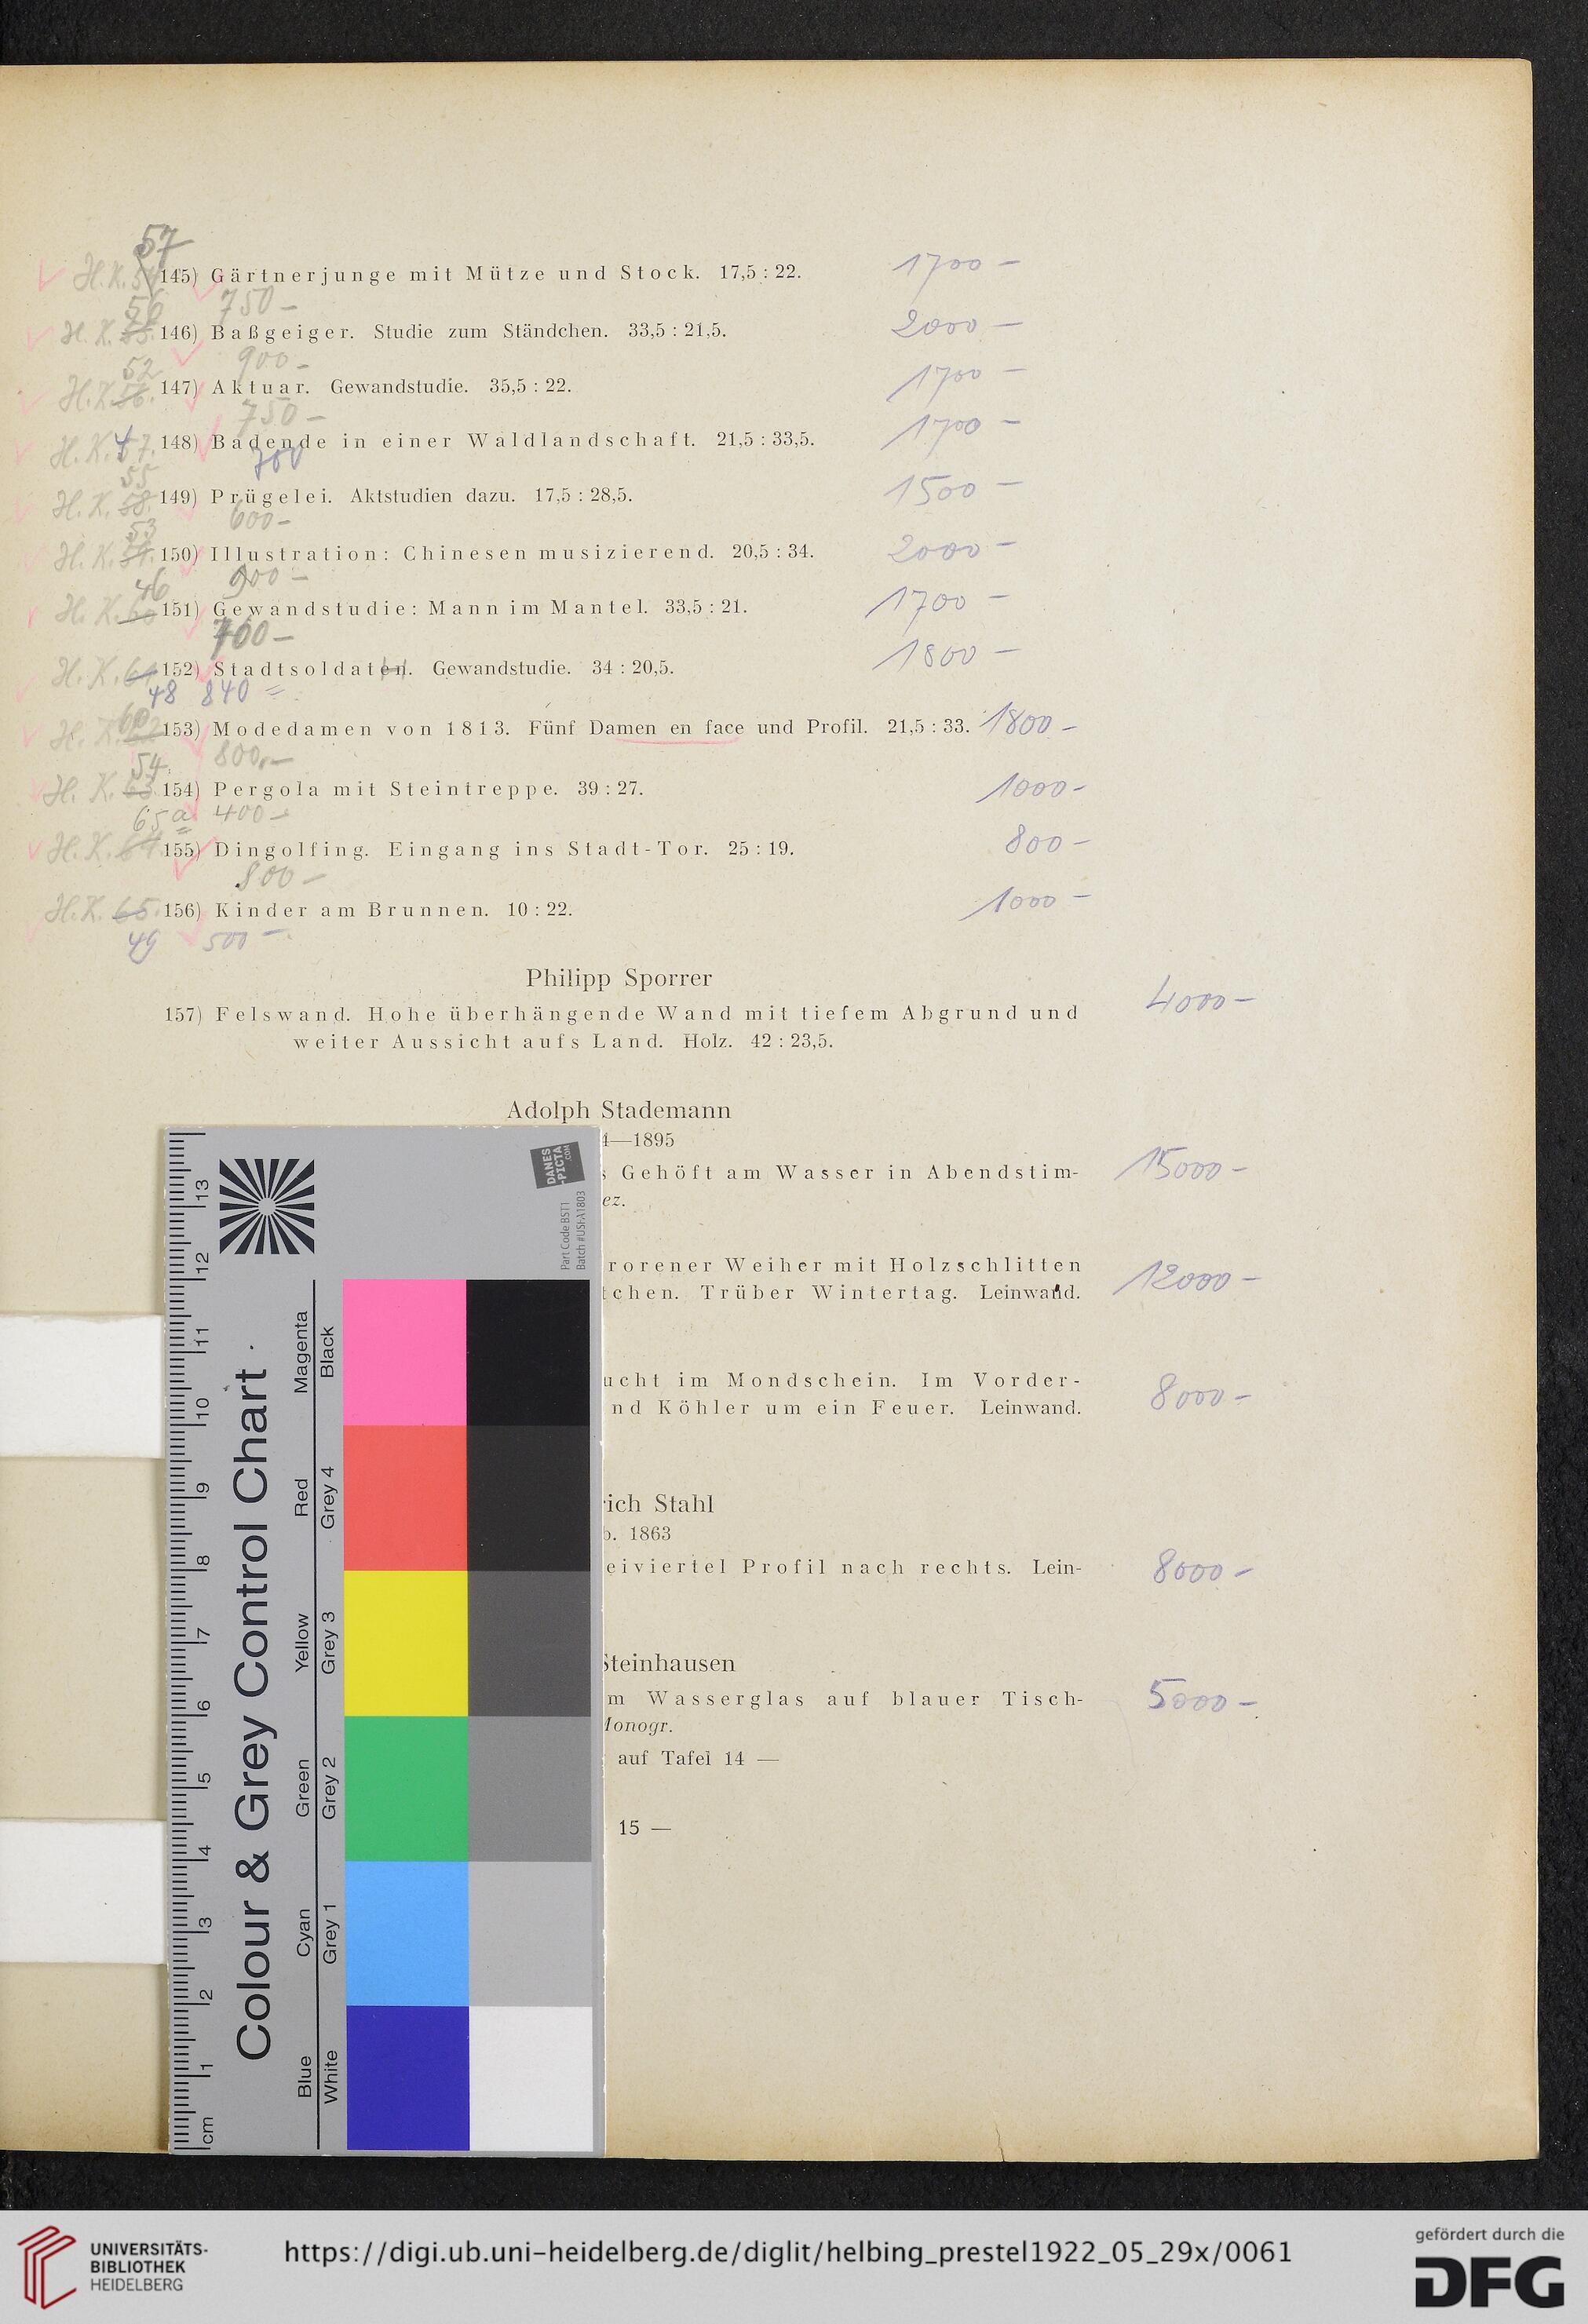 57
H.K. 145) Gärtnerjunge mit Mütze und Stock. 17,5 : 22. 1700 —
56 750 —
H.K. 55. 146) Baßgeiger. Studie zum Ständchen. 33,5 : 21,5. 2000 —
52 900 —
H.K. 56. 147) Aktuar. Gewandstudie. 35,5 : 22. 1700 —
750 —
H.K. 57. 148) Badende in einer Waldlandschaft. 21,5 : 33,5. 1700 —
55 700
H.K. 58. 149) Prügelei. Aktstudien dazu. 17,5 : 28,5. 1500 —
53 600 —
H.K. 59. 150) Illustration: Chinesen musizierend. 20,5 : 34. 2000 —
46 900 —
H.K. 60 151) Gewandstudie: Mann im Mantel. 33,5 : 21. 1700 —
700 —
H.K. 61 152) Stadtsoldaten. Gewandstudie. 34 : 20,5. 1800 —
48 840 =
60
H.K. 62 153) Modedamen von 1813. Fünf Damen en face und Profil. 21,5 : 33. 1800 —
54. 800,—
H.K. 63 154) Pergola mit Steintreppe. 39 : 27. 1000 —
65a 400 —
H.K. 64. 155) Dingolfing. Eingang ins Stadt-Tor. 25 : 19. 800 —
800 —
H.K. 65. 156) Kinder am Brunnen. 10 : 22. 1000 —
49 500 —
Philipp Sporrer
157) Felswand. Hohe überhängende Wand mit tiefem Abgrund und 4000 —
weiter Aussicht aufs Land. Holz. 42 : 23,5.
Adolph Stademann
4—1895
s Gehöft am Wasser in Abendstim- 15000 —
ez.
rorener Weiher mit Holzschlitten 12000 —
tchen. Trüber Wintertag. Leinwand.
ucht im Mondschein. Im Vorder- 8000 —
nd Köhler um ein Feuer. Leinwand.
rich Stahl
b. 1863
eiviertel Profil nach rechts. Lein- 8000 —
Steinhausen
m Wasserglas auf blauer Tisch- 5000 —
Monogr.
auf Tafel 14 —
15 —
DANES
-PICTA
.COM
Part Code BST1
Batch #USFA1803
Colour & Grey Control Chart
Magenta Black
Red Grey 4
Yellow Grey 3
Green Grey 2
Cyan Grey 1
Blue White
13
12
11
10
9
8
7
6
5
4
3
2
1
cm
UNIVERSITÄTS-
BIBLIOTHEK
HEIDELBERG
https://digi.ub.uni-heidelberg.de/diglit/helbing_prestel1922_05_29x/0061
gefördert durch die
DFG